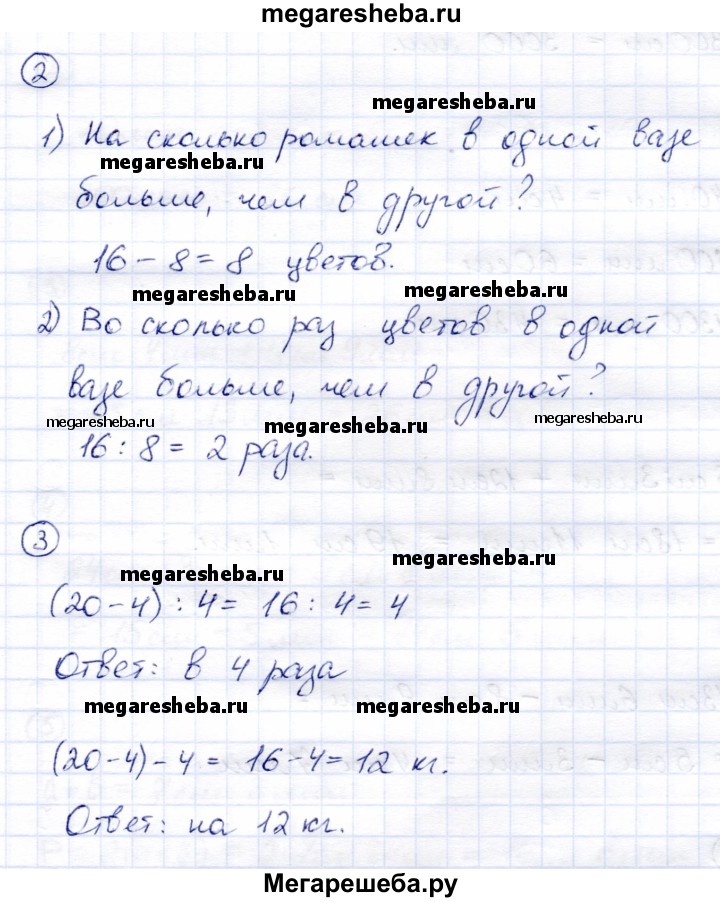 megaresheba.ru
2
megaresheba.ru
1) На сколько ромашек в одной вазе
megaresheba.ru
больше, чем в другой?
16 - 8 = 8 цветов.
megaresheba.ru megaresheba.ru
2) Во сколько раз цветов в одной
вазе больше, чем в другой?
megaresheba.ru megaresheba.ru megaresheba.ru
16 : 8 = 2 раза.
3
megaresheba.ru
megaresheba.ru
(20-4) : 4 = 16 : 4 = 4
Ответ: в 4 раза
megaresheba.ru megaresheba.ru
(20-4) - 4 = 16-4 = 12 кг.
Ответ: на 12 кг.
Мегарешеба.ру